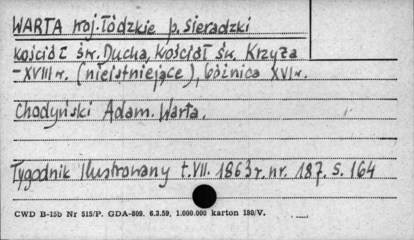 WARTA woj. Łódzkie p. Sieradzki
Kościół św. Ducha, Kościół św. Krzyża
-XVIII w. (nieistniejące), bóżnica XVI w.
Chodyński Adam. Warta.
Tygodnik Ilustrowany t. VII. 1863 r. nr. 187. s. 164
CWD B-15b Nr 515/P. GDA-809. 6.3.59. 1.000.000 karton 180/V.